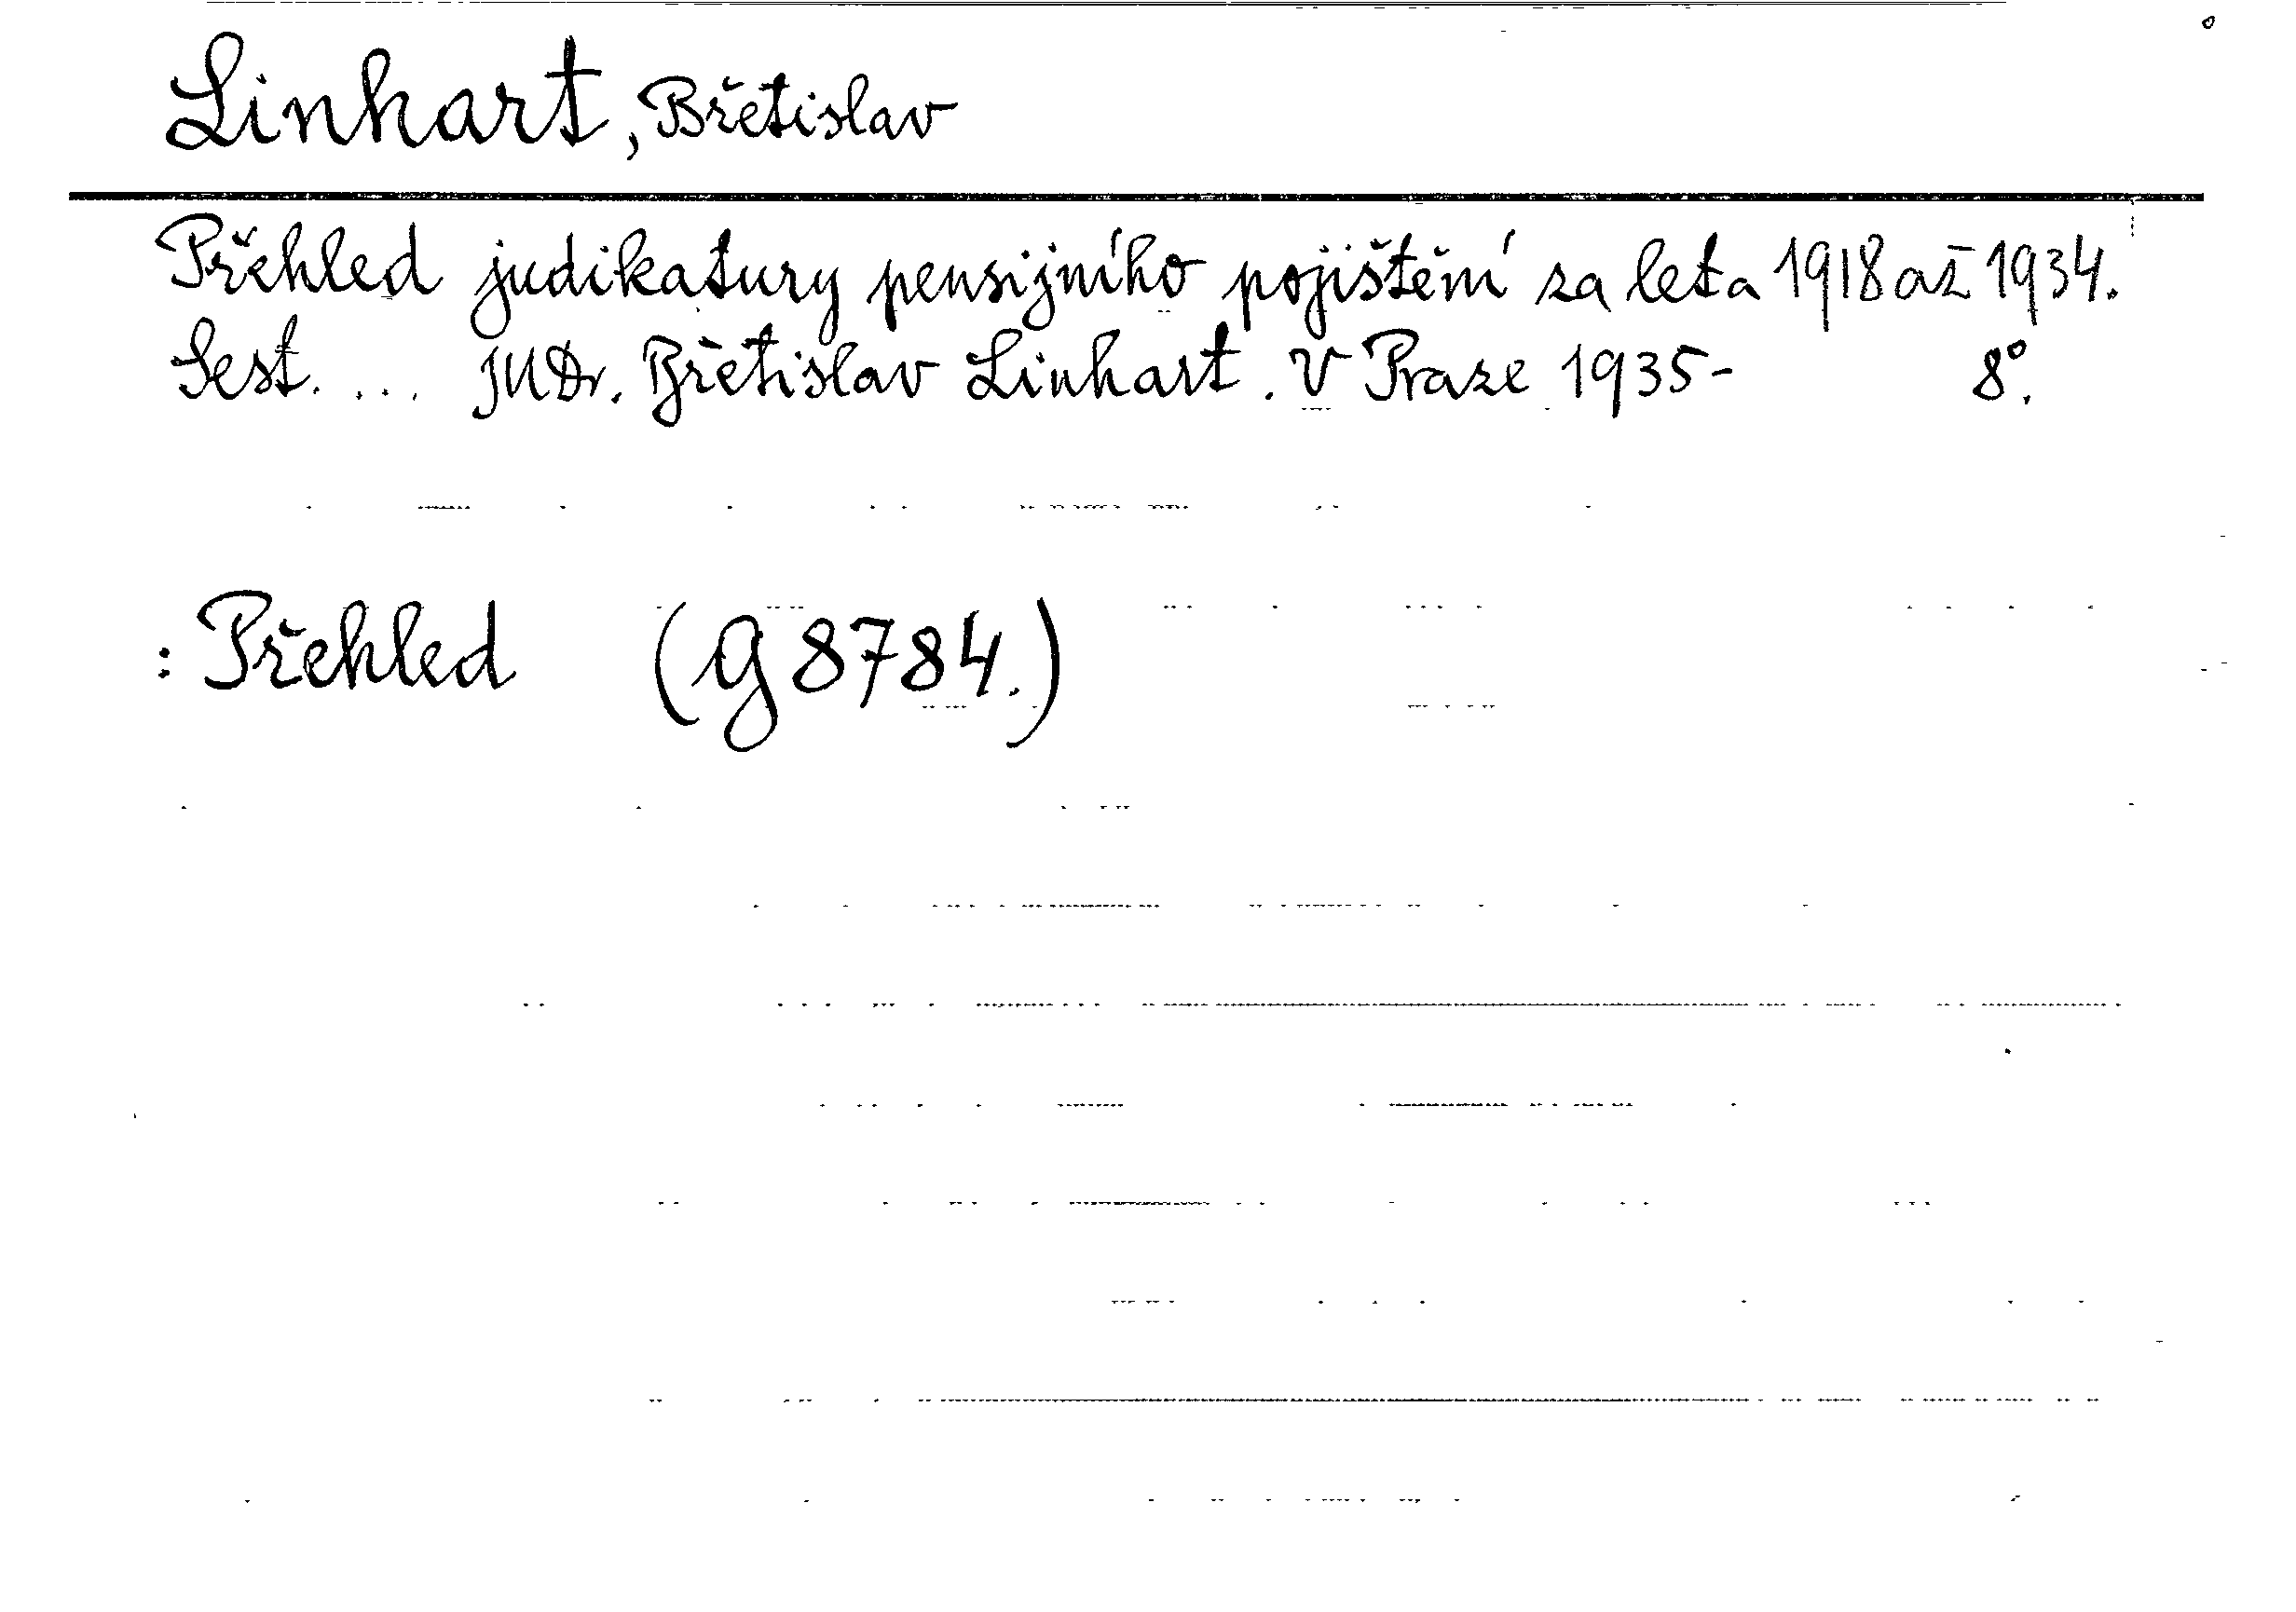 Linhart, Břetislav
Přehled judikatury pensijního pojištění za leta 1918 až 1934.
Sest. ... JUDr. Břetislav Linhart. V Praze 1935- 8°.
: Přehled (g 8784.)